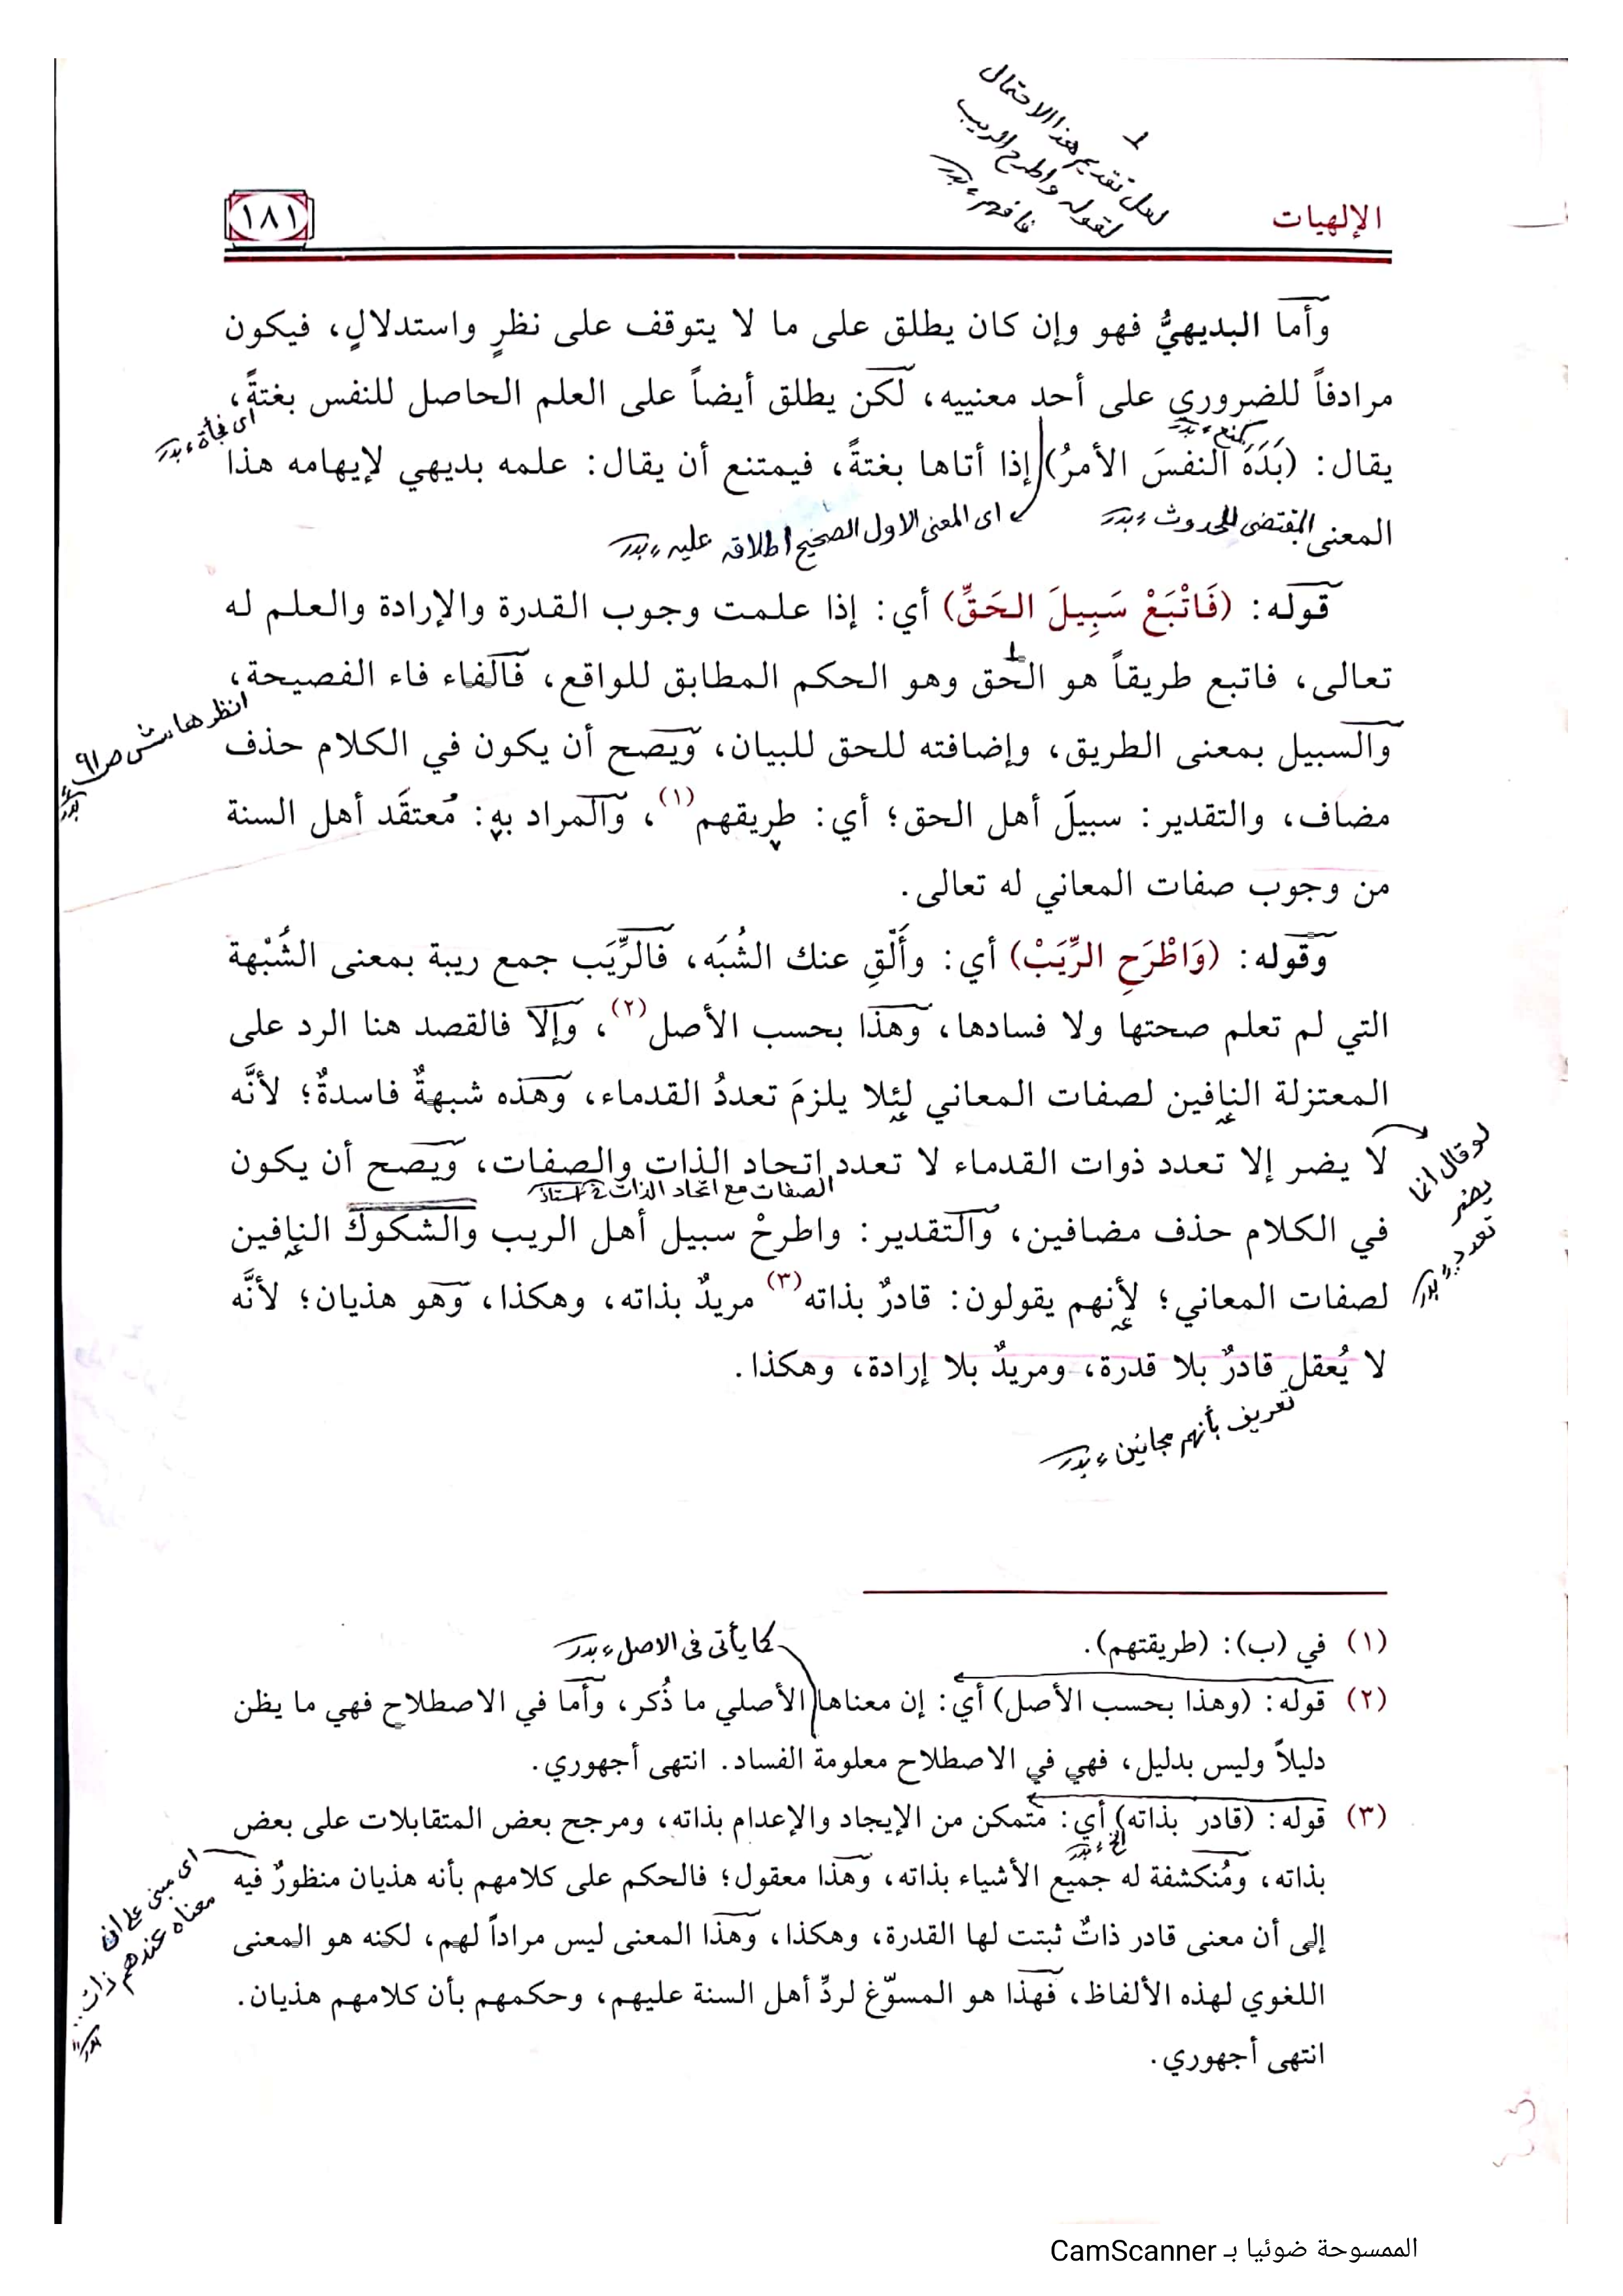 لعل تقديم هذا الاحتمال
لقوله واطرح الريب
فافهم ء بدر
الإلهيات
١٨١
وأما البديهيُّ فهو وإن كان يطلق على ما لا يتوقف على نظرٍ واستدلالٍ، فيكون
مرادفاً للضروري على أحد معنييه، لكن يطلق أيضاً على العلم الحاصل للنفس بغتةً،
اى فجأة ء بدر
كمنع ء بدر
يقال: (بَدَهَ النفسَ الأمرُ) إذا أتاها بغتةً، فيمتنع أن يقال: علمه بديهي لإيهامه هذا
المعنى المقتضى للحدوث ء بدر
اى المعنى الاول الصحيح اطلاقه عليه ء بدر
قوله: (فَاتْبَعْ سَبِيلَ الحَقِّ) أي: إذا علمت وجوب القدرة والإرادة والعلم له
تعالى، فاتبع طريقاً هو الحق وهو الحكم المطابق للواقع، فالفاء فاء الفصيحة،
انظر هامش ص ٩١
بدر
والسبيل بمعنى الطريق، وإضافته للحق للبيان، ويصح أن يكون في الكلام حذف
مضاف، والتقدير: سبيلَ أهل الحق؛ أي: طريقهم(١)، والمراد به: مُعتقَد أهل السنة
من وجوب صفات المعاني له تعالى.
وقوله: (وَاطْرَحِ الرِّيَبْ) أي: وأَلْقِ عنك الشُبَه، فالرِّيَب جمع ريبة بمعنى الشُبْهة
التي لم تعلم صحتها ولا فسادها، وهذا بحسب الأصل(٢)، وإلا فالقصد هنا الرد على
المعتزلة النافين لصفات المعاني لئلا يلزمَ تعددُ القدماء، وهذه شبهةٌ فاسدةٌ؛ لأنَّه
لا يضر إلا تعدد ذوات القدماء لا تعدد اتحاد الذات والصفات، ويصح أن يكون
لو قال انما
يضر
تعدد..
بدر
الصفات مع اتحاد الذات
في الكلام حذف مضافين، والتقدير: واطرحْ سبيل أهل الريب والشكوك النافين
لصفات المعاني؛ لأنهم يقولون: قادرٌ بذاته(٣) مريدٌ بذاته، وهكذا، وهو هذيان؛ لأنَّه
لا يُعقل قادرٌ بلا قدرة، ومريدٌ بلا إرادة، وهكذا.
تعريف بأنهم مجانين ء بدر
كما يأتى فى الاصل ء بدر
(١) في (ب): (طريقتهم).
(٢) قوله: (وهذا بحسب الأصل) أي: إن معناها الأصلي ما ذُكر، وأما في الاصطلاح فهي ما يظن
دليلاً وليس بدليل، فهي في الاصطلاح معلومة الفساد. انتهى أجهوري.
(٣) قوله: (قادر بذاته) أي: متمكن من الإيجاد والإعدام بذاته، ومرجح بعض المتقابلات على بعض
الخ ء بدر
بذاته، ومُنكشفة له جميع الأشياء بذاته، وهذا معقول؛ فالحكم على كلامهم بأنه هذيان منظورٌ فيه
اى مبنى على ان
معناه عندهم ذات..
بدر
إلى أن معنى قادر ذاتٌ ثبتت لها القدرة، وهكذا، وهذا المعنى ليس مراداً لهم، لكنه هو المعنى
اللغوي لهذه الألفاظ، فهذا هو المسوّغ لردِّ أهل السنة عليهم، وحكمهم بأن كلامهم هذيان.
انتهى أجهوري.
الممسوحة ضوئيا بـ CamScanner